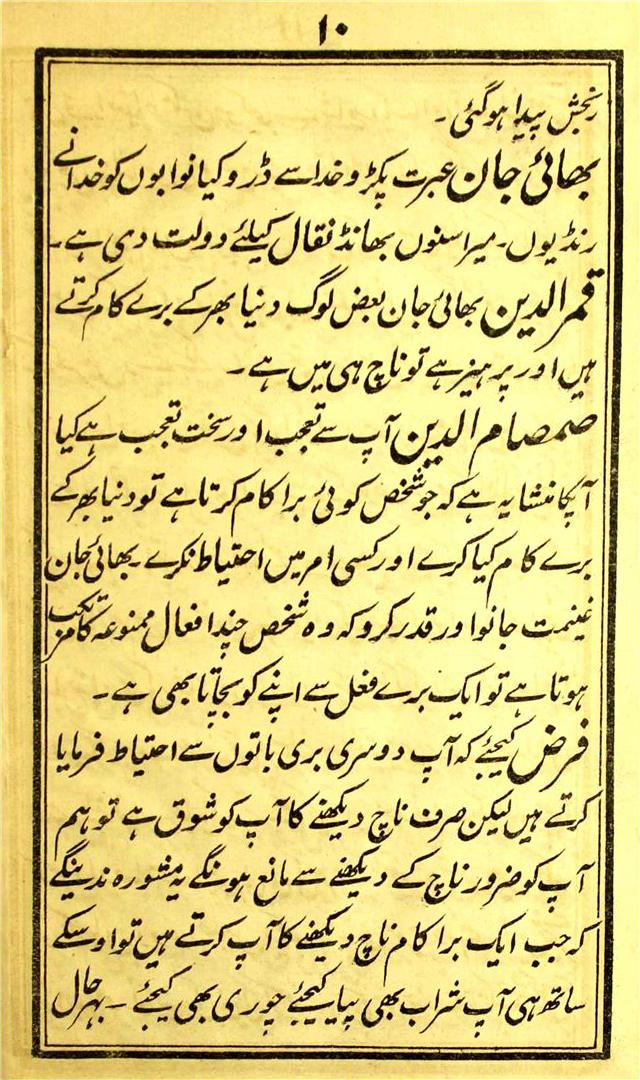 ۱۰
رنجش پیدا ہوگئی۔
بھائی جان عبرت پکڑو خدا سے ڈرو کیا نوابوں کو خدا نے
رنڈیوں۔ میراسنوں بھانڈ نقال کیلئے دولت دی ہے۔
قمرالدین بھائی جان بعض لوگ دنیا بھر کے برے کام کرتے
ہیں اور پرہیز ہے تو ناچ ہی میں ہے۔
صمصام الدین آپ سے تعجب اور سخت تعجب ہے کیا
آپکا منشا یہ ہے کہ جو شخص کوئی برا کام کرتا ہے تو دنیا بھر کے
برے کام کیا کرے اور کسی امر میں احتیاط نکرے۔ بھائی جان
غنیمت جانو اور قدر کرو کہ وہ شخص چند افعال ممنوعہ کا مرتکب
ہوتا ہے تو ایک برے فعل سے اپنے کو بچاتا بھی ہے۔
فرض کیجئے کہ آپ دوسری بری باتوں سے احتیاط فرمایا
کرتے ہیں لیکن صرف ناچ دیکھنے کا آپ کو شوق ہے تو ہم
آپ کو ضرور ناچ کے دیکھنے سے مانع ہونگے یہ مشورہ ندینگے
کہ جب ایک برا کام ناچ دیکھنے کا آپ کرتے ہیں تو اوسکے
ساتھ ہی آپ شراب بھی پیا کیجئے چوری بھی کیجئے۔ بہرحال